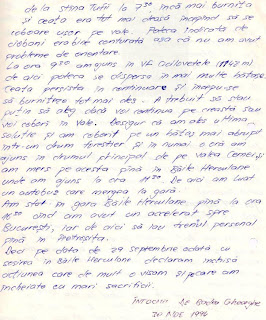 de la stâna Tufii la 7³⁰ încă mai burnița
și ceața era tot mai deasă începând să se
coboare ușor pe vale. Poteca indicată de
ciobani este conturată așa că nu am avut
probleme de orientare.
La ora 9³⁰ am ajuns în Vf. Ciclovetele
de aici poteca se dispersa în mai multe
Ceața persista în continuare și începu-se
să burnițeze tot mai des. A trebuit să stau
puțin să aleg dacă voi continua pe creastă sau
voi coborî în vale. Desigur că am ales ultima
soluție și am coborât pe un mai abrupt
într-un drum forestier și în numai o oră am
ajuns în drumul principal de pe Valea Cernei și
am mers pe acesta până în Băile Herculane
unde am ajuns la ora De aici am luat
un autobuz care mergea la gară.
Am stat în gara Băile Herculane până la ora
16³⁰ când am avut un accelerat spre
București, iar de aici să iau trenul personal
până în
Deci pe data de 29 septembrie odată cu
sosirea în Băile Herculane declaram închisă
acțiunea care de mult o visam și pe care am
încheiat-o cu mari sacrificii.
Întocmit Gheorghe
30 Nov 1996